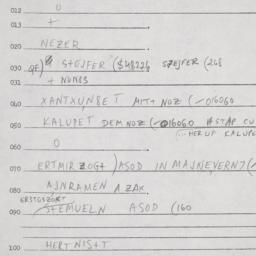 012 0
013 +
020 NEZER
030 STEJFER ($48226 SZEJFER (268
031 + NUN83
040 XANTXUNBET MIT+ NOZ (-016060
050 KALUPET DEM NOZ (-016060 #STAP CU
(... HERUP KALUPE
060 0
070 ERTMIRZOGT) ASOD IN MAJNEVERNJ
080 AJNRAMEN A ZAX
090 STEMUELN ASOD (160
100 HERT NIST